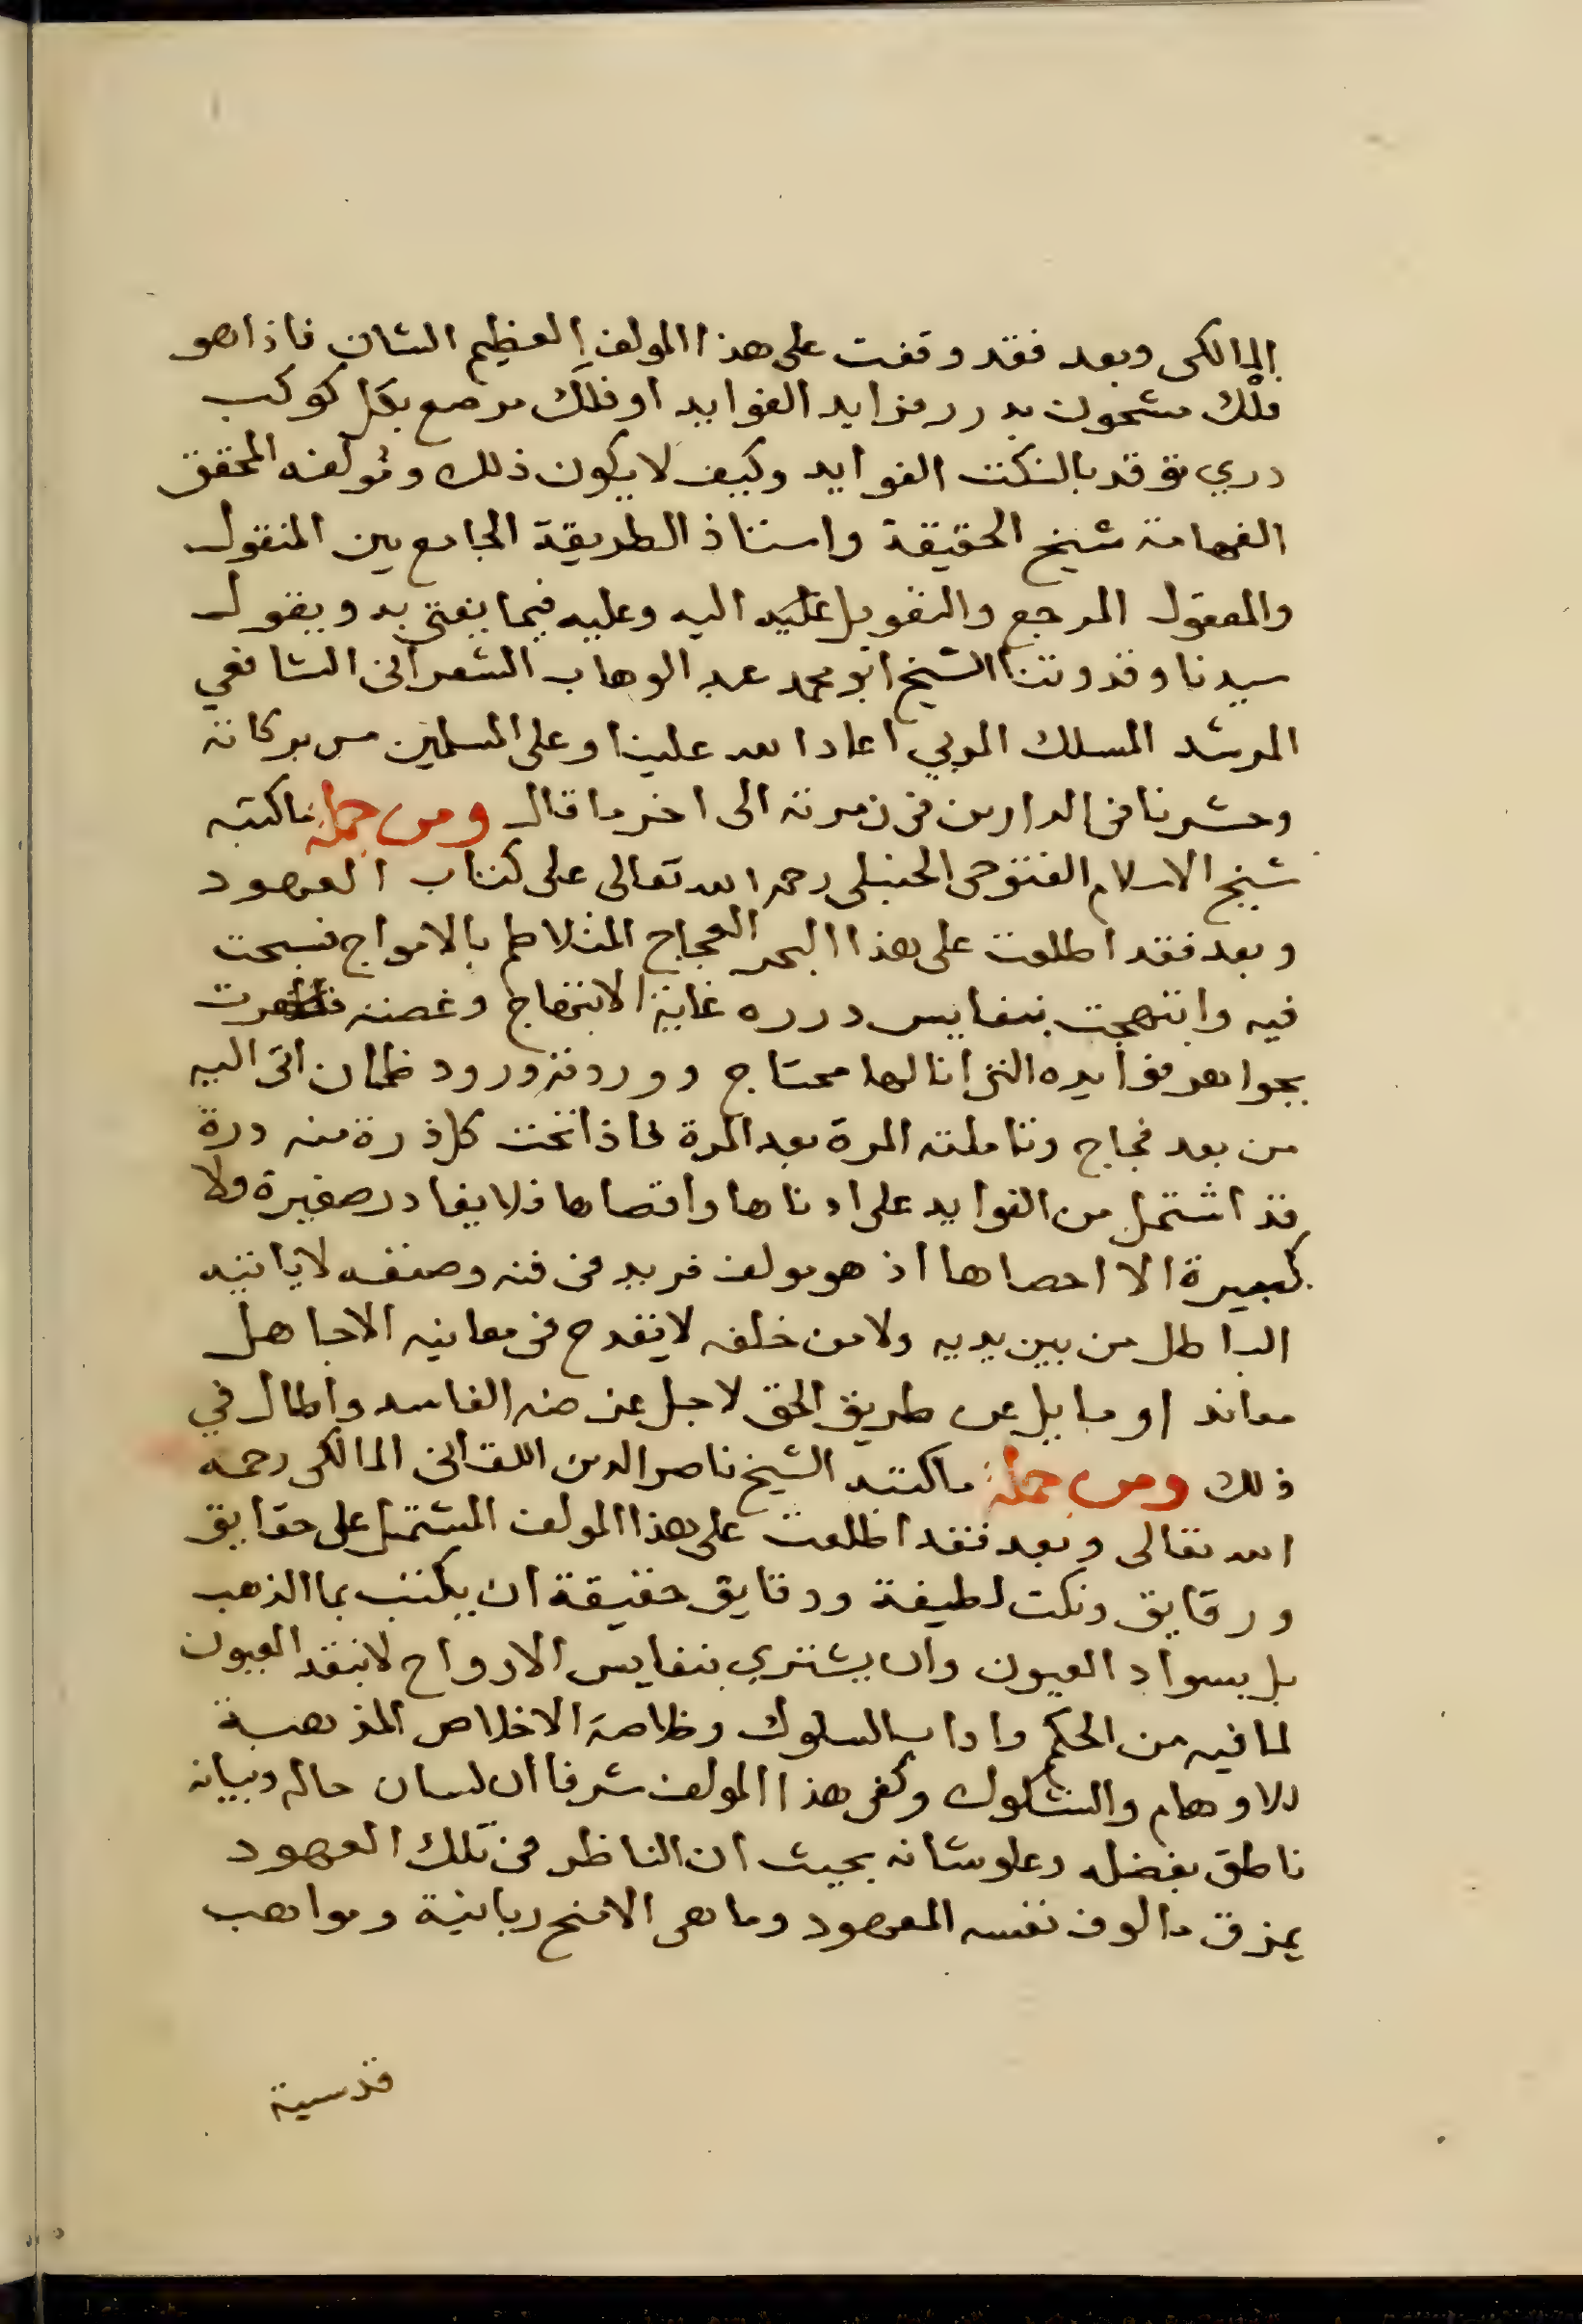 المالكى وبعد فقد وقفت على هذا المولف العظيم الشان فاذا هو
فلك مشحون بدرر فزايد الفوايد او فلك مرصع بكل كوكب
دري توقد بالنكت الفوايد وكيف لا يكون ذلك ومولفه المحقق
الفهامة شيخ الحقيقة واستاذ الطريقة الجامع بين المنقول
والمعقول المرجع والتعويل اليه وعليه فيما يفتى به ويقول
سيدنا وقدوتنا الشيخ ابو محمد عبد الوهاب الشعرانى الشافعي
المرشد المسلك المربي اعاد الله علينا وعلى المسلمين من بركاته
وحشرنا فى الدارين فى زمرته الى اخر ما قال ومن جملة ما كتبه
شيخ الاسلام الفتوحى الحنبلى رحمه الله تعالى على كتاب العهود
وبعد فقد اطلعت على هذا البحر العجاج المتلاطم بالامواج فسبحت
فيه وابتهجت بنفايس درره غاية الابتهاج وغصته فظفرت
بجواهر فوايده التى انا لها محتاج ووردته ورود ظمان اتى اليه
من بعد فجاج وتاملته المرة بعد المرة فاذا تحت كل ذرة منه درة
قد اشتمل من الفوايد على ادناها واقصاها فلا يغادر صغيرة ولا
كبيرة الا احصاها اذ هو مولف فريد فى فنه وصنفه لا ياتيه
الباطل من بين يديه ولا من خلفه لا يقدح فى معانيه الا جاهل
معاند او مايل عن طريق الحق لاجل غرضه الفاسد واطال في
ذلك ومن جملة ما كتبه الشيخ ناصر الدين اللقانى المالكى رحمه
الله تعالى وبعد فقد اطلعت على هذا المولف المشتمل على حقايق
ورقايق ونكت لطيفة ودقايق حقيقة ان يكتب بما الذهب
بل بسواد العيون وان يشتري بنفايس الارواح لا بنقد العيون
لما فيه من الحكم واداب السلوك وخلاصة الاخلاص المذهبة
للاوهام والشكوك وكفى هذا المولف شرفا ان لسان حاله وبيانه
ناطق بفضله وعلو شانه بحيث ان الناظر فى تلك العهود
يمزق مالوف نفسه المعهود وما هى الا منح ربانية ومواهب
قدسية